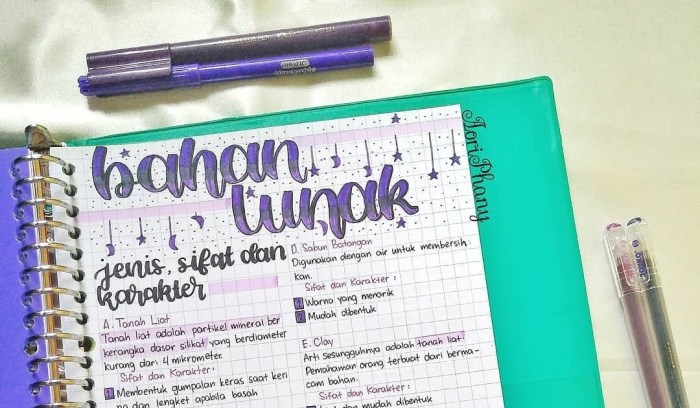 bahan
lunak
jenis, sifat dan
karakter
A. Tanah Liat
Tanah liat adalah partikel mineral ber
kerangka dasar silikat yang berdiameter
kurang dari 4 mikrometer.
Sifat dan Karakter:
1 Membentuk gumpalan keras saat keri
ng dan lengket apabila basah
D. Sabun Batangan
Digunakan dengan air untuk membersih
kan.
Sifat dan Karakter:
1 Warna yang menarik
2 Mudah dibentuk
E. Clay
Arti sesungguhnya adalah tanah liat.
Pemahaman orang terbuat dari berma-
cam bahan.
Sifat dan Karakter:
dan mudah dibentuk
Jori Phany